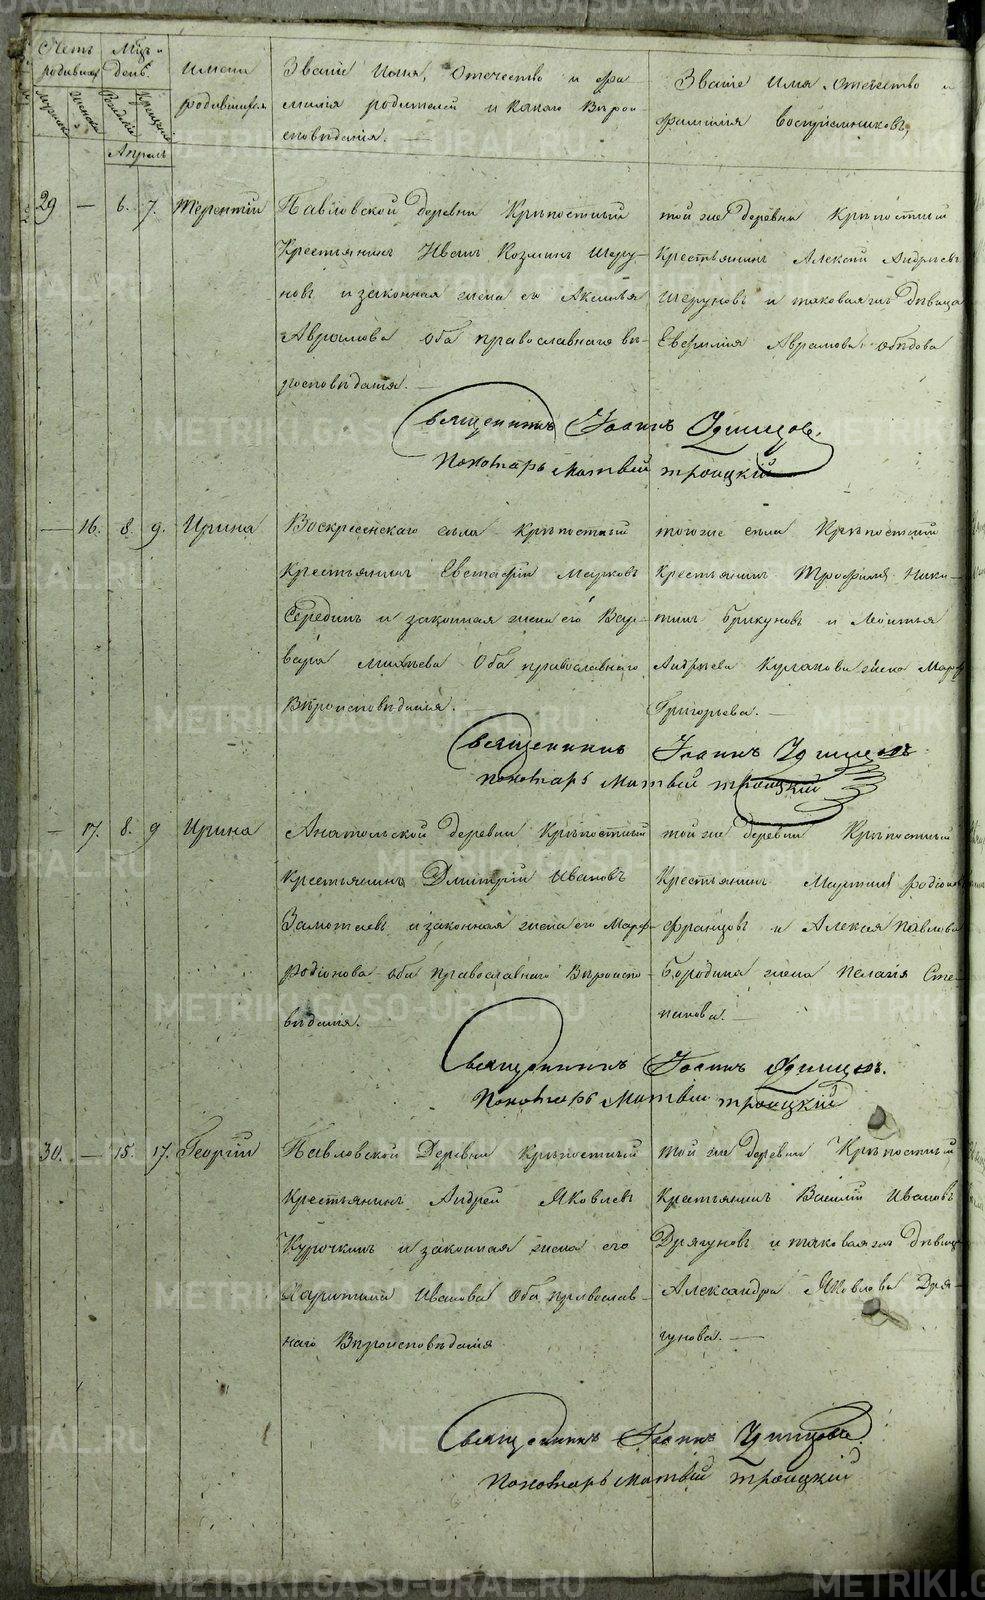 Счетъ родившихся
Мцъ и день.
мужска
женска
Рожденiя
Крещенiя
Апрель
Имена родившихся
Званiе Имя, Отечество и Фа
милiя родителей и какого Вѣрои
сповѣданiя.
Званiе Имя Отечество и
фамилiя воспрiемниковъ
29 — 6. 7. Терентiй
Павловской деревни Крѣпостный
Крестьянинъ Иванъ Козминъ Шеру-
новъ и законная жена его Аксинья
Аврамова оба православнаго вѣ-
роисповѣданiя. —
той же деревни Крѣпостный
Крестьянинъ Алексѣй Андреевъ
Шеруновъ и таковая жъ дѣвица
Евфимiя Аврамова
Священникъ Iоаннъ Одинцовъ.
Пономарь Матвѣй Троицкiй
— 16. 8. 9. Ирина
Воскресенскаго села Крѣпостный
Крестьянинъ Евстафiй Марковъ
Серединъ и законная жена его Вар-
вара Михѣева Оба православнаго
Вѣроисповѣданiя.
тогоже села Крѣпостный
Крестьянинъ Трофимъ Ники-
тинъ Брикуновъ и Леонтья
Андреева Курганова жена Марфа
Григорьева. —
Священникъ Iоаннъ Одинцовъ
пономарь Матвѣй Троицкiй
— 17. 8. 9 Ирина
Анатольской деревни Крѣпостный
крестьянинъ Дмитрiй Ивановъ
Замотаевъ и законная жена его Марфа
Родiонова оба православнаго Вѣроиспо-
вѣданiя.
той же деревни Крѣпостный
Крестьянинъ Родiоновъ
Францовъ и Алексея Павлова
Бородина жена Пелагiя Сте-
панова. —
Священникъ Iоаннъ Одинцовъ.
Пономарь Матвѣй Троицкiй
30. — 15. 17. Георгiй
Павловской Деревни Крѣпостный
Крестьянинъ Андрей Яковлевъ
Курочкинъ и законная жена его
Харитина Иванова Оба православ-
наго Вѣроисповѣданiя
той же деревни Крѣпостный
Крестьянинъ Василiй Ивановъ
Дрягуновъ и таковая жъ дѣвица
Александра Яковлева Дря-
гунова. —
Священникъ Iоаннъ Одинцовъ
Пономарь Матвѣй Троицкiй
METRIKI.GASO-URAL.RU